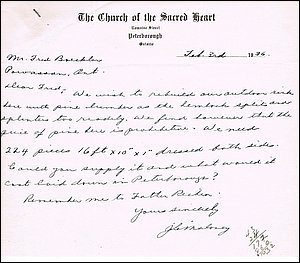 The Church of the Sacred Heart
Romaine Street
Peterborough
Ontario
Feb. 3rd 1936
Mr. Fred
Powassan, Ont.
Dear Fred, We wish to rebuild our outdoor rink
here with pine lumber as the hemlock splits and
splinters too readily. We find however that the
price of pine here is prohibitive. We need
224 pieces 16ft x 10" x 1" dressed both sides.
Could you supply it and what would it
cost laid down in Peterborough?
Remember me to Father
Yours sincerely